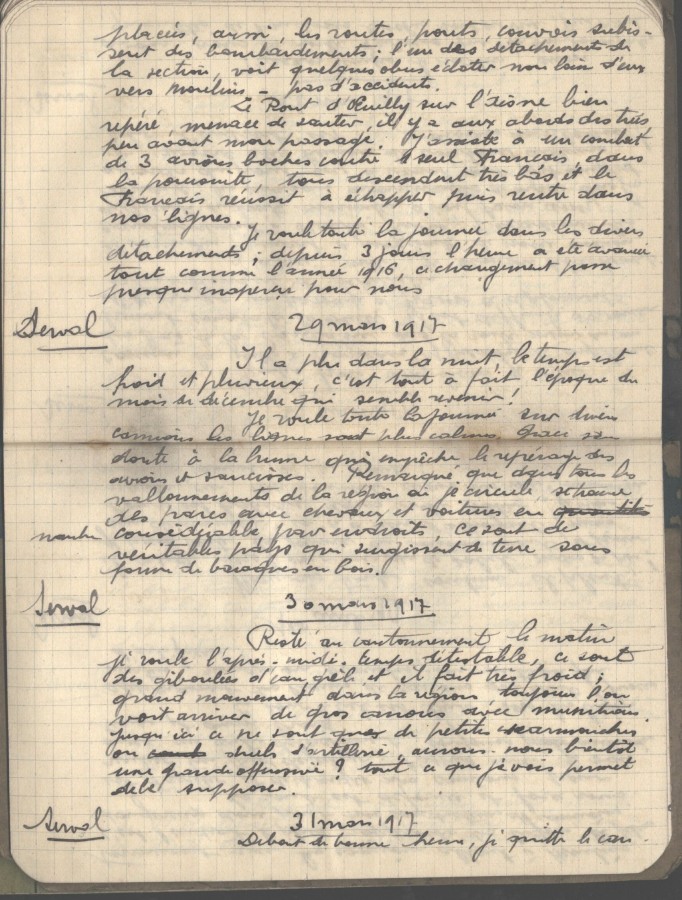 placés, aussi, les routes, ponts, convois subis-
sent des bombardements; l'un des détachements de
la section, voit quelques obus éclater non loin d'eux
vers Moulins - pas d'accidents.
Le Pont d'Oeuilly sur l'Aisne bien
repéré, menace de sauter, il y a aux abords des très
peu avant mon passage. J'assiste à un combat
de 3 avions boches contre 1 seul Français, dans
la poursuite, tous descendent très bas et le
Français réussit à échapper puis rentre dans
nos lignes.
Je roule toute la journée dans les divers
détachements; depuis 3 jours l'heure a été avancée
tout comme l'année 1916, ce changement passe
presque inaperçu pour nous
Serval 29 mars 1917
Il a plu dans la nuit, le temps est
froid et pluvieux, c'est tout à fait l'époque du
mois de décembre qui semble revenir!
Je roule toute la journée sur divers
camions les lignes sont plus calmes, grâce sans
doute à la brume qui empêche le repérage des
avions et saucisses. Remarqué que dans tous les
vallonnements de la région où je circule se trouve
des parcs avec chevaux et voitures en quantités
nombre considérable par endroits, ce sont de
véritables pays qui surgissent de terre sous
forme de baraques en bois.
Serval 30 mars 1917
Resté au cantonnement le matin
je roule l'après-midi. temps détestable, ce sont
des giboulées d'eau, grêle et il fait très froid;
grand mouvement dans la région toujours l'on
voit arriver de gros canons avec munitions.
jusqu'ici ce ne sont que de petites escarmouches
ou duels d'artillerie, aurons-nous bientôt
une grande offensive? tout ce que je vois permet
de le supposer.
Serval 31 mars 1917
Debout de bonne heure, je quitte le can-